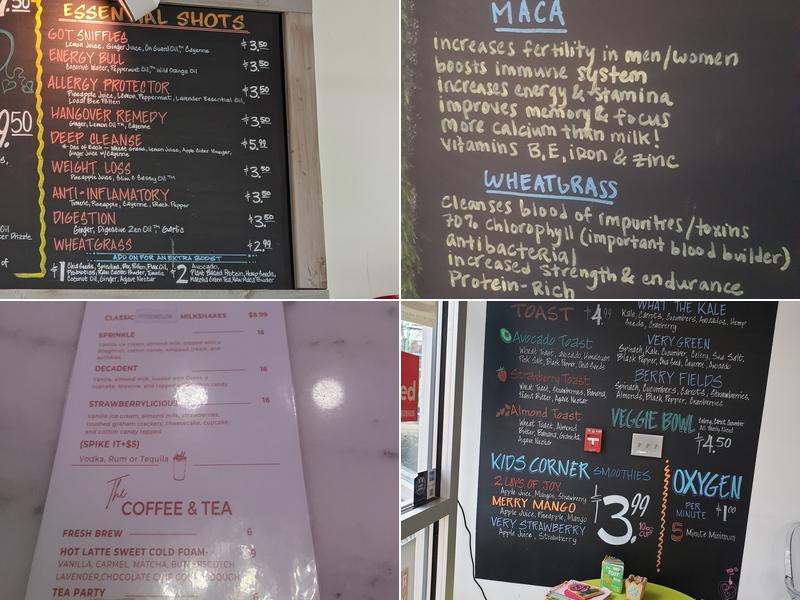 7.50
ESSENTIAL SHOTS
GOT SNIFFLES
Lemon Juice, Ginger Juice, On Guard Oil™, Cayenne
$3.50
ENERGY BULL
Coconut Water, Peppermint Oil,™ Wild Orange Oil
$3.50
ALLERGY PROTECTOR
Pineapple Juice, Lemon, Peppermint, Lavender Essential Oil,
Local Bee Pollen
$3.50
HANGOVER REMEDY
Ginger, Lemon Oil™, Cayenne
$3.50
DEEP CLEANSE
One of Each - Wheat Grass, Lemon Juice, Apple Cider Vinegar,
Ginger Juice w/ Cayenne
$5.99
WEIGHT LOSS
Pineapple Juice, Slim & Sassy Oil™
$3.50
ANTI-INFLAMATORY
Tumeric, Pineapple, Cayenne, Black Pepper
$3.50
DIGESTION
Ginger, Digestive Zen Oil™ Garlic
$3.50
WHEATGRASS
$2.99
ADD ON FOR AN EXTRA BOOST
$1 Chia Seeds, Spirulina, Bee Pollen, Flax Oil,
Probiotics, Raw Cacao Powder,
Coconut Oil, Ginger, Agave Nectar
$2 Avocado,
Plant Based Protein, Hemp Seeds,
Matcha Green Tea, Raw Maca Powder
9.50
Oil
er Drizzle
of
MACA
increases fertility in men/women
boosts immune system
increases energy & stamina
improves memory & focus
more calcium than milk!
vitamins B, E, iron & zinc
WHEATGRASS
Cleanses blood of impurities/toxins
70% chlorophyll (important blood builder)
antibacterial
increased strength & endurance
Protein-Rich
CLASSIC MILKSHAKES $8.99
SPRINKLE 16
Vanilla ice cream, almond milk, topped with a
doughnut, cotton candy, whipped cream, and
sprinkles.
DECADENT 16
Vanilla, almond milk, topped with Oreos, a
cupcake, brownie, and topped cotton candy
STRAWBERRYLICIOUS 16
Vanilla ice cream, almond milk, strawberries,
crushed graham crackers, cheesecake, cupcake,
and cotton candy topped
(SPIKE IT+$5)
Vodka, Rum or Tequila
The
COFFEE & TEA
FRESH BREW 6
HOT LATTE SWEET COLD FOAM- 9
VANILLA, CARMEL, MATCHA, BUTTERSCOTCH
LAVENDER,CHOCOLATE CHIP COOKIE DOUGH
TEA PARTY 6
TOAST $4.99
Avocado Toast
Wheat Toast, Avocado, Himalayan
Pink Salt, Black Pepper, Chia Seeds
Strawberry Toast
Wheat Toast, Strawberries, Banana,
Plant Butter, Agave Nectar
Almond Toast
Wheat Toast, Almond
Butter, Banana, Granola,
Agave Nectar
WHAT THE KALE
Kale, Carrots, Cucumbers, Avocados, Hemp
Seeds, Cranberry
VERY GREEN
Spinach, Kale, Cucumber, Celery, Sea Salt,
Black Pepper, Chia Seed, Cayenne, Avocado
BERRY FIELDS
Spinach, Cucumbers, Carrots, Strawberries,
Almonds, Black Pepper, Cranberries
VEGGIE BOWL
$4.50
KIDS CORNER SMOOTHIES
2 LAYS OF JOY
Apple Juice, Mangos, Strawberry
MERRY MANGO
Apple Juice, Pineapple, Mango
VERY STRAWBERRY
Apple Juice, Strawberry
$3.99
10oz
CUP
OXYGEN
PER
MINUTE $1.00
5 Minute Minimum
ed